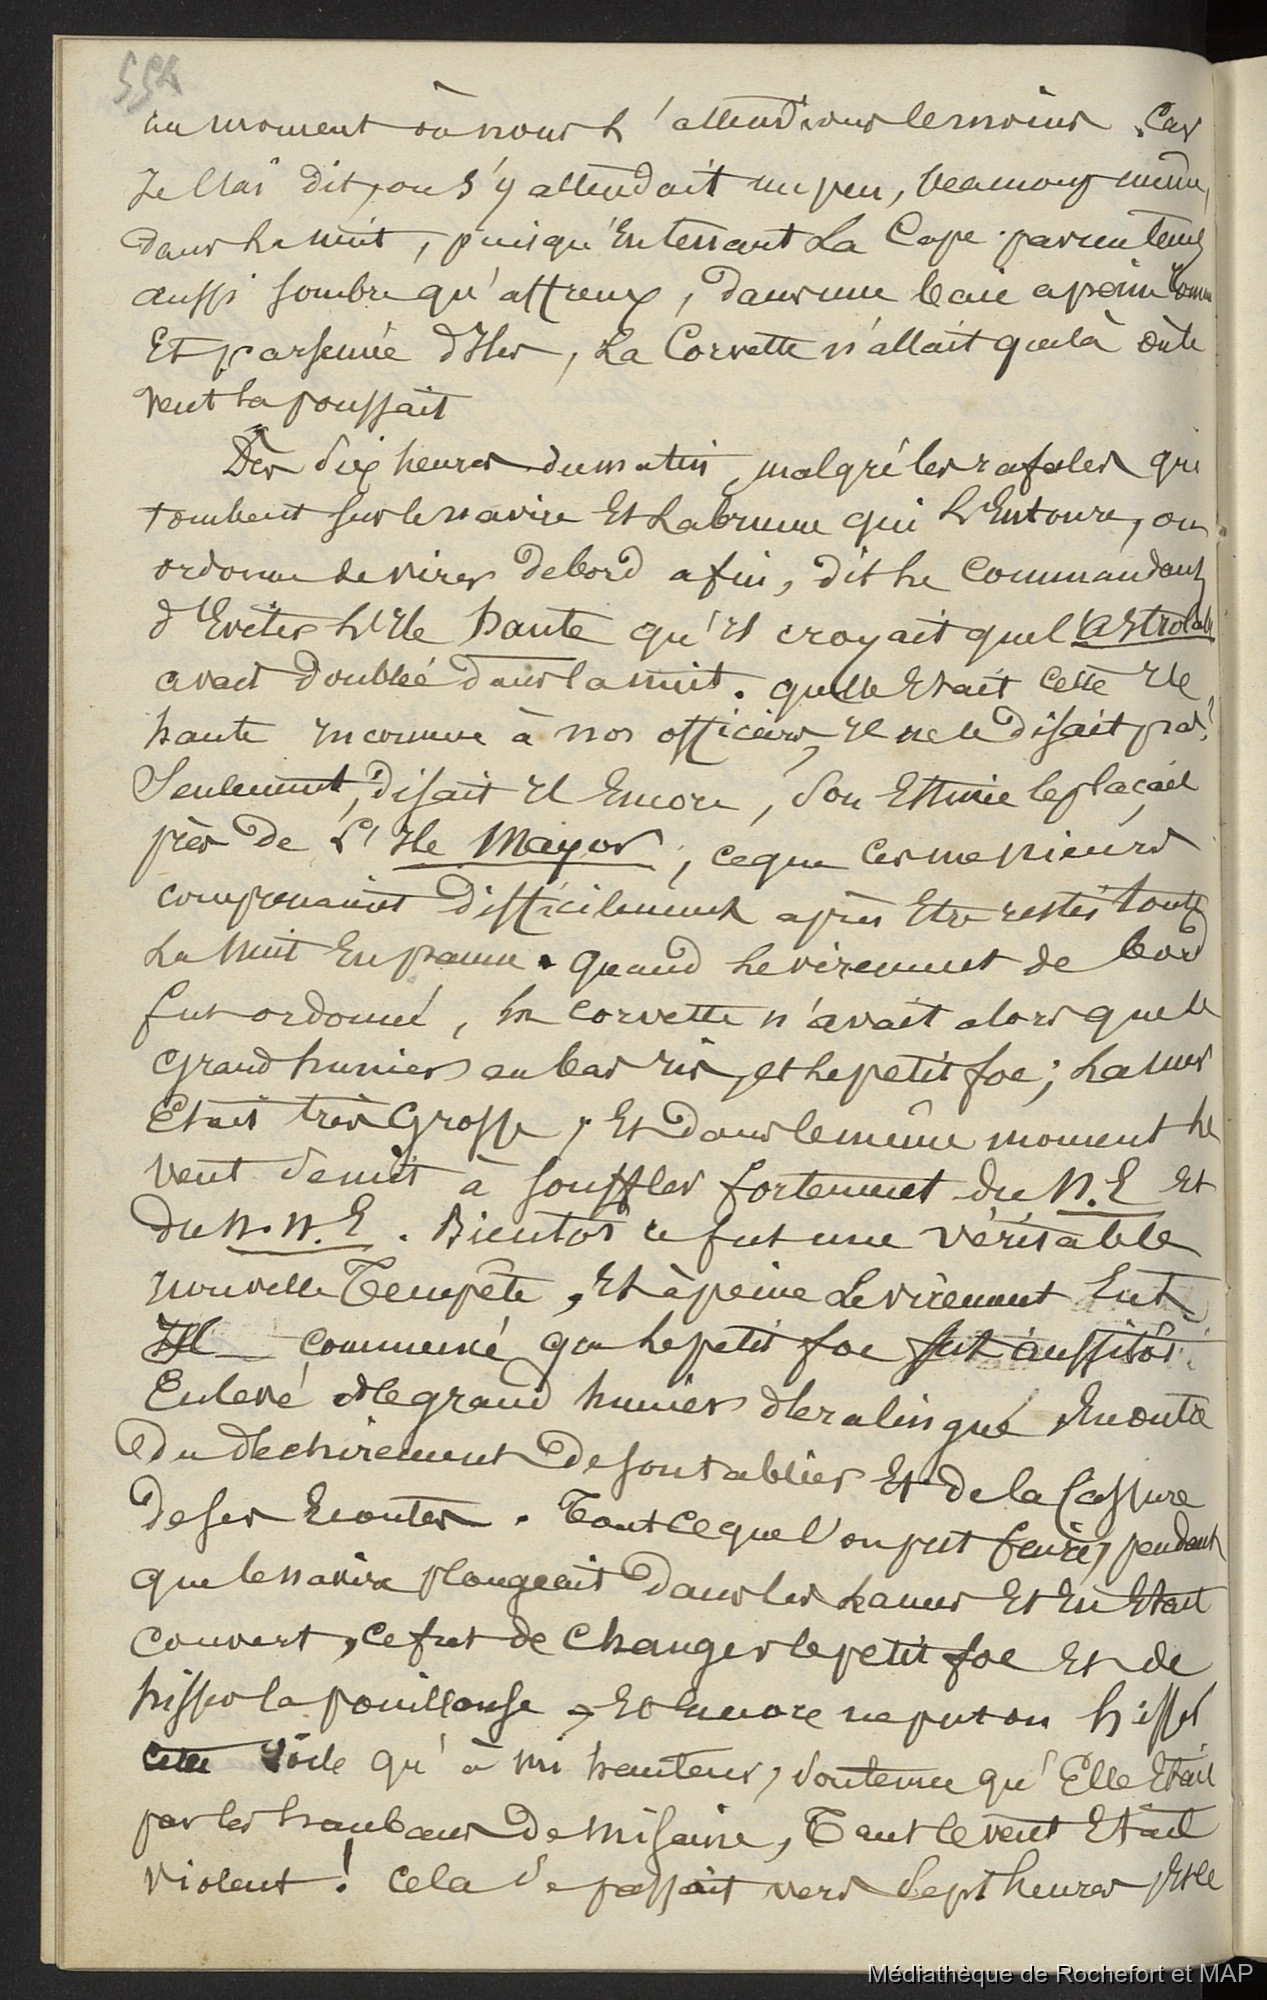 554
au moment où nous l'attendions le moins. Car
Je l'ai dit, on s'y attendait un peu, beaucoup même,
dans la nuit, puisqu'En tenant La Cape par un temps
aussi sombre qu'affreux, dans une baie a peine connue
Et parsemée d'Iles, La Corvette n'allait que là où le
vent la poussait
Dès six heures du matin, malgré les rafales qui
tombent sur le navire Et La brume qui L'Entoure, on
ordonne de virer de bord afin, dit le Commandant
d'Eviter L'Ile haute qu'il croyait que l'Astrolabe
avait doublée dans la nuit. quelle Etait cette Ile
haute inconnue à nos officiers, Il ne le disait pas!
Seulement, disait Il Encore, son Estime le plaçait
près de L'Ile Mayor, ce que ces messieurs
comprenaient difficilement après Etre restés toute
La Nuit En panne. quand le virement de bord
fut ordonné, la corvette n'avait alors que le
grand hunier au bas ris, et le petit foc; La mer
Etait très Grosse, Et dans le même moment le
vent se mit à souffler fortement du N.E Et
du N.N.E. Bientôt ce fut une véritable
nouvelle Tempête, Et à peine Le virement Eut
Il commencé que le petit foc fut aussitôt
Enlevé et le grand hunier déralingué En outre
du déchirement de son tablier Et de la Cassure
de ses Ecoutes. Tout ce que l'on put faire, pendant
que le navire plongeait dans les Lames Et En Etait
couvert, ce fut de changer le petit foc Et de
hisser la pouillouse, Et Encore ne put on hisser
cette voile qu'à mi hauteur, soutenue qu'Elle Etait
par les haubans De Misaine, Tant le vent Etait
violent! Cela se passait vers sept heures Et le
Médiathèque de Rochefort et MAP